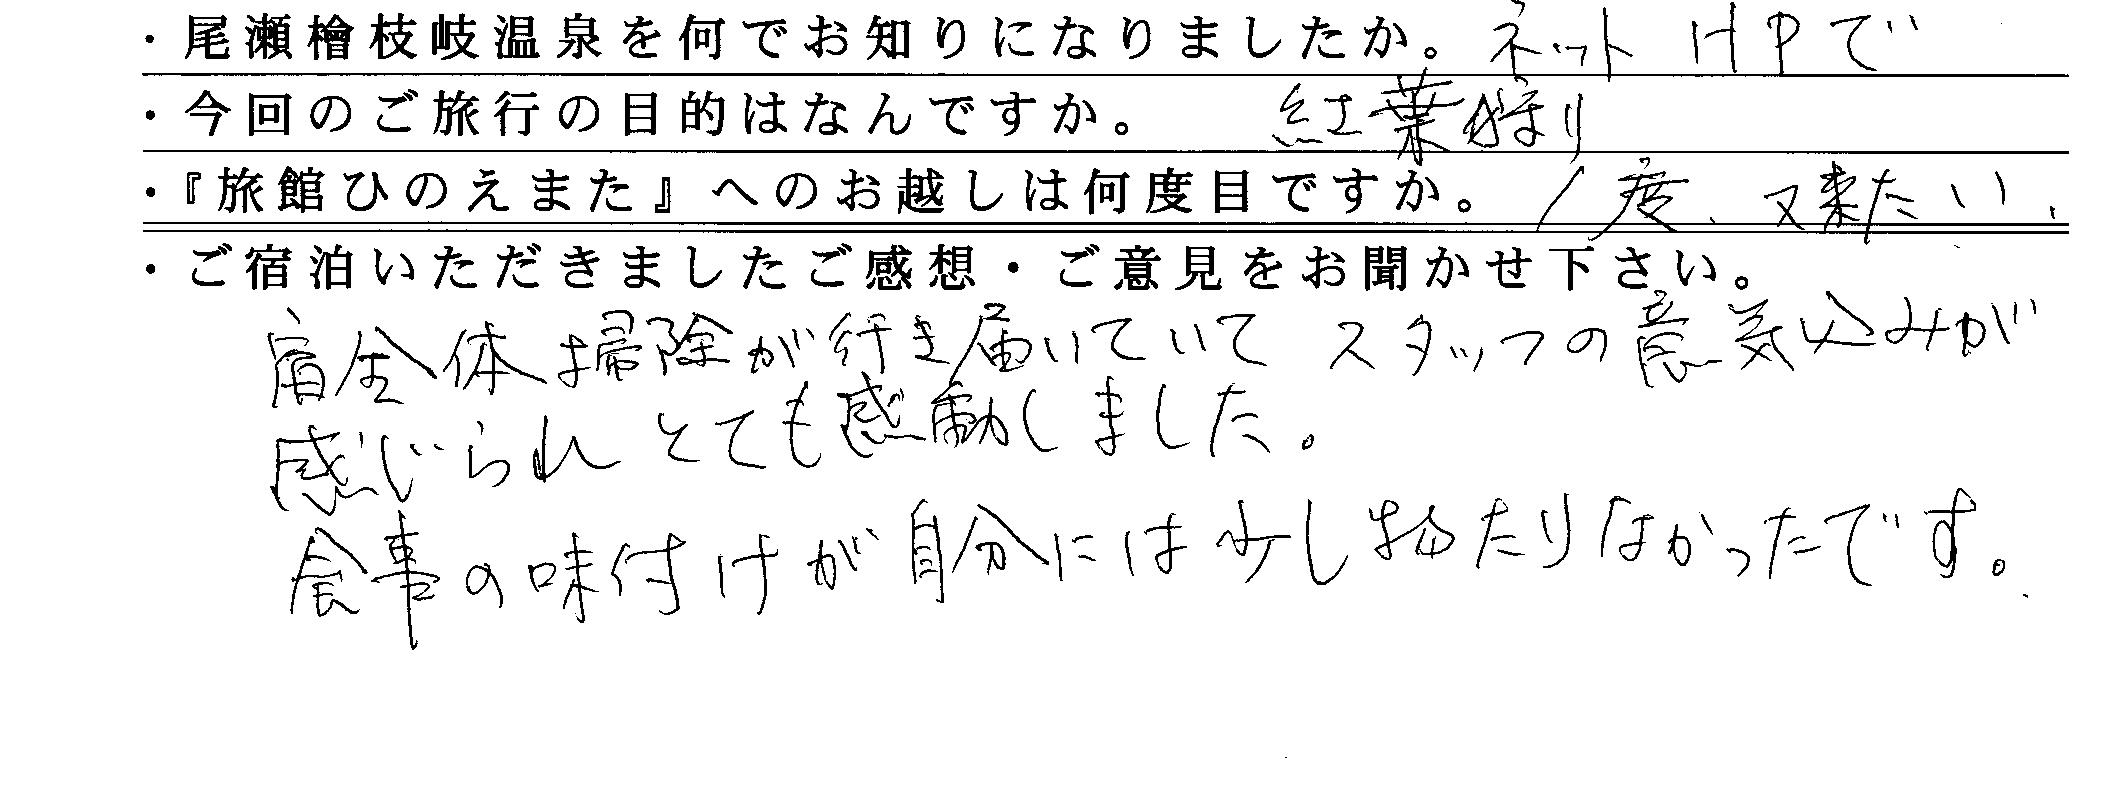 ・尾瀬檜枝岐温泉を何でお知りになりましたか。 ネット HPで
・今回のご旅行の目的はなんですか。 紅葉狩り
・『旅館ひのえまた』へのお越しは何度目ですか。 1度、又来たい、
・ご宿泊いただきましたご感想・ご意見をお聞かせ下さい。
宿全体掃除が行き届いていて スタッフの意気込みが
感じられ とても感動しました。
食事の味付けが自分には少し物たりなかったです。